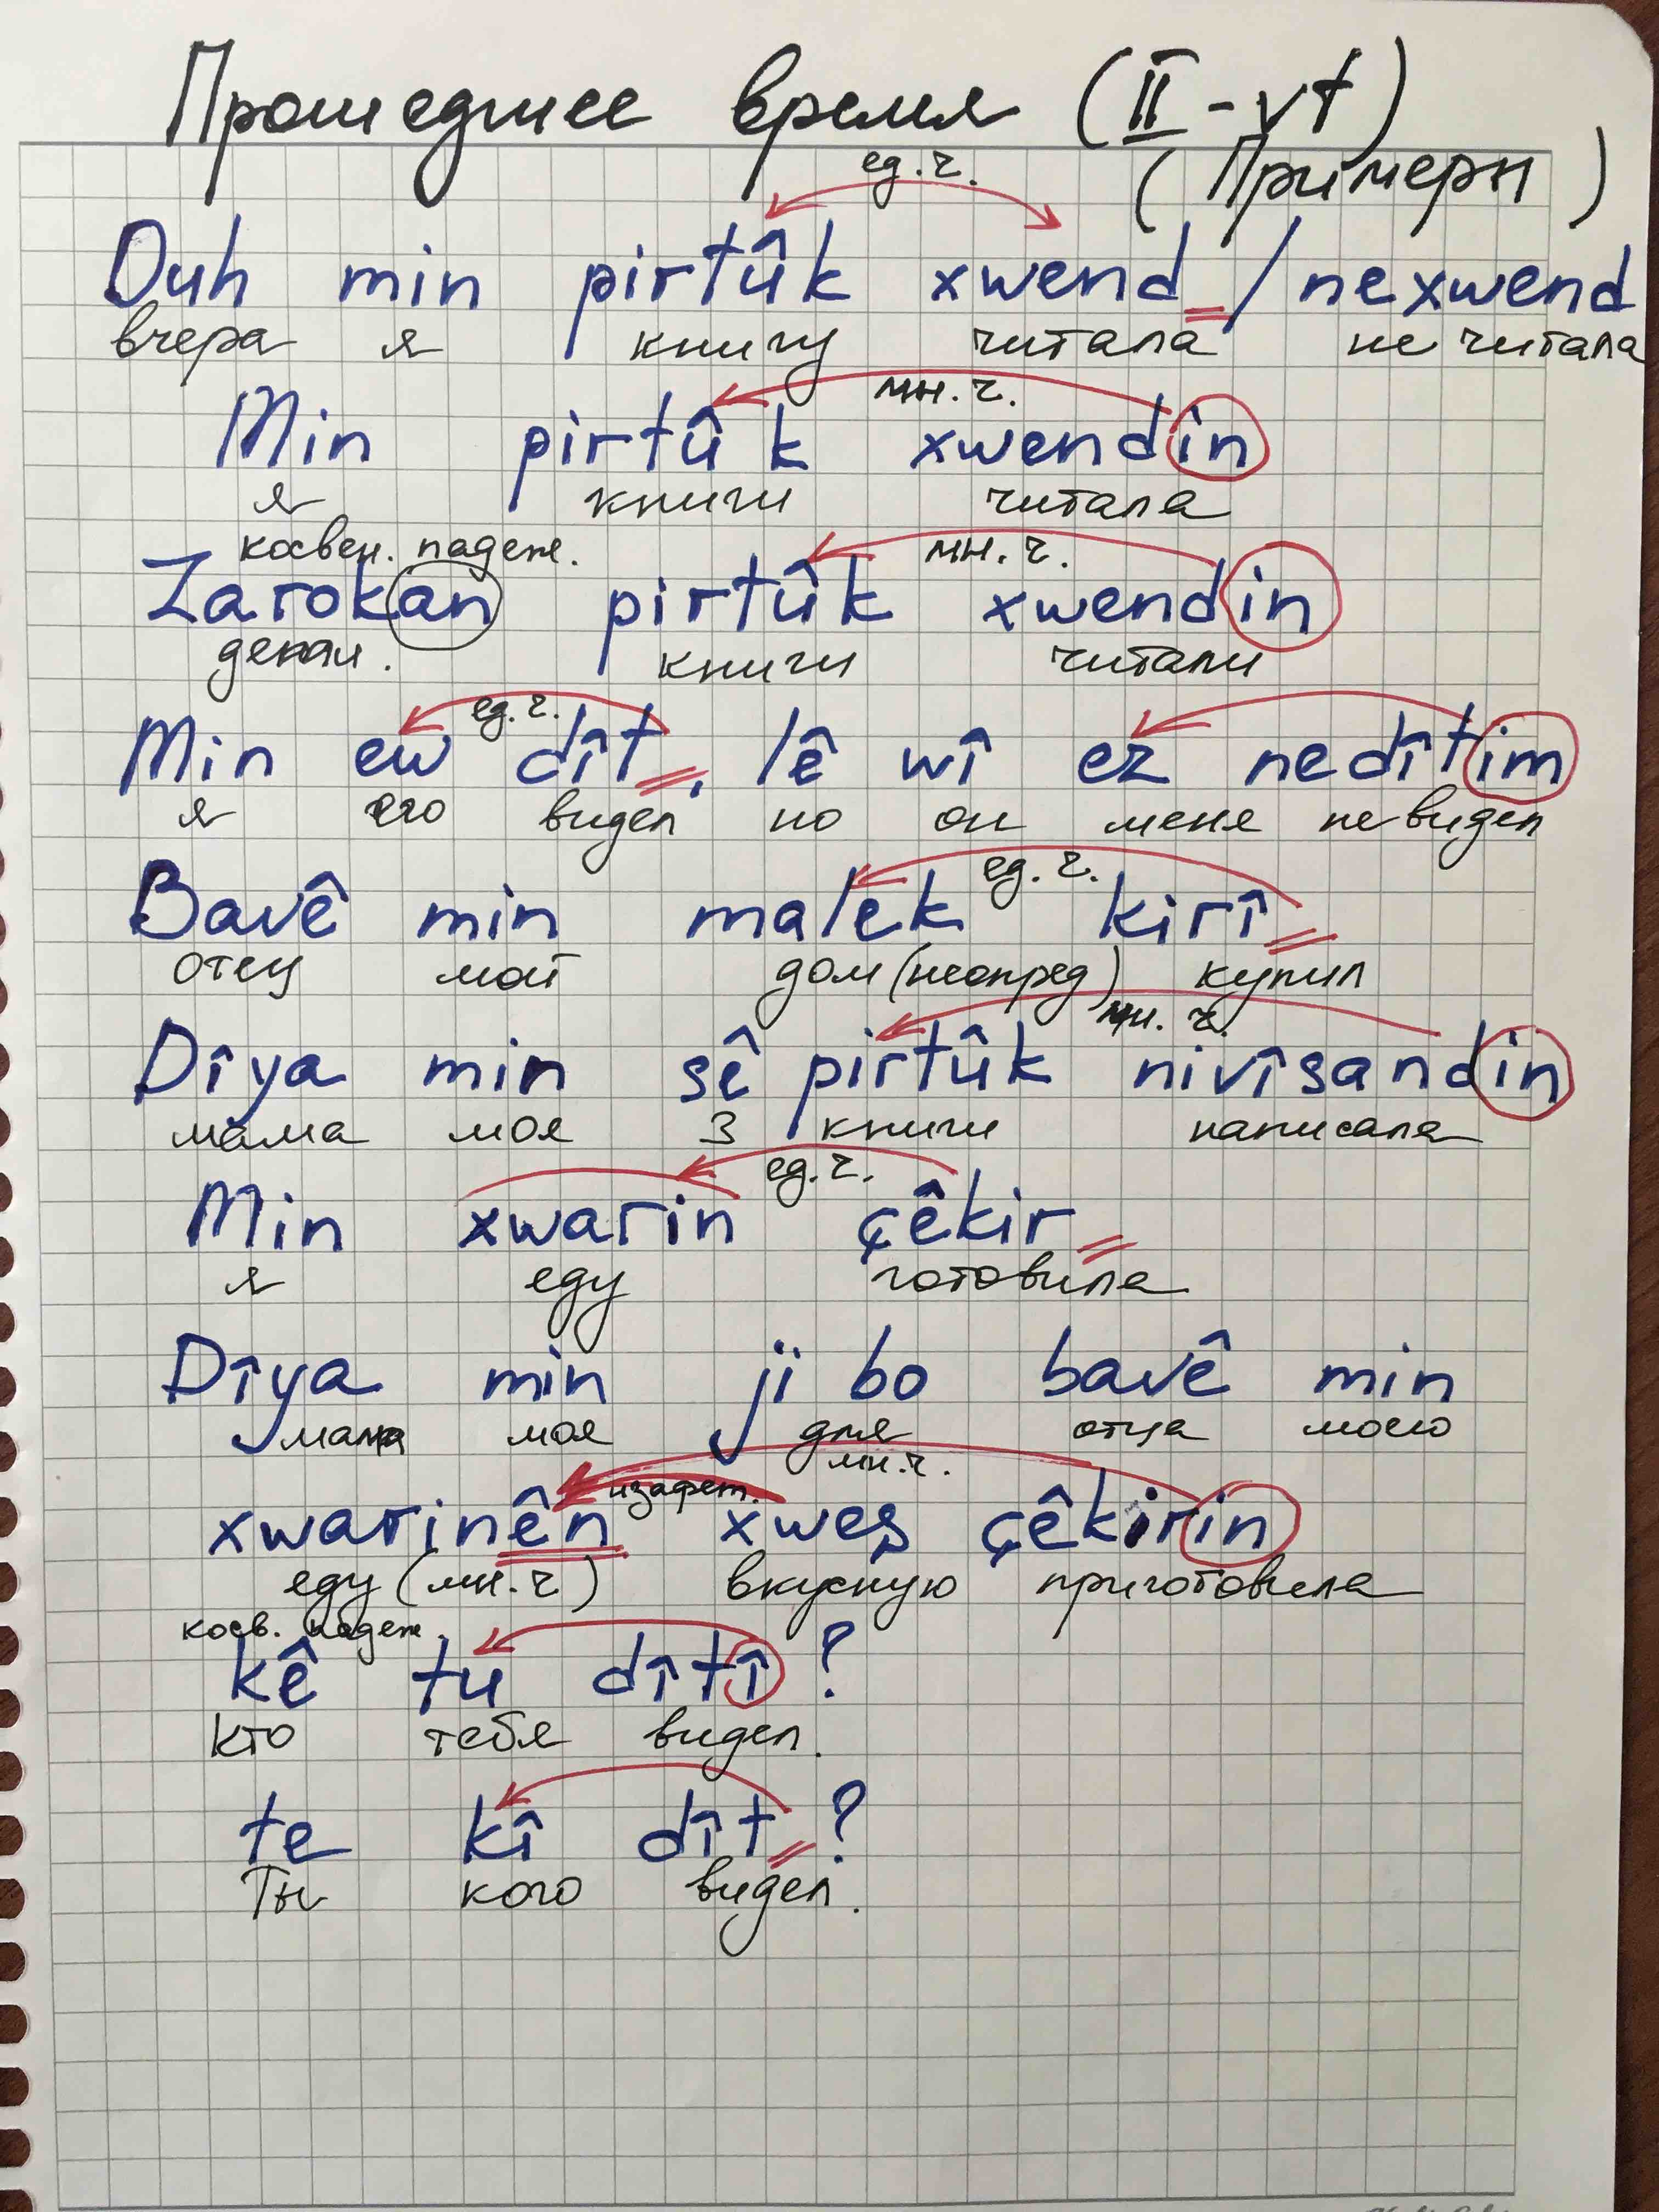 Прошедшее время (II - vt)
(Примеры)
ед. ч.
Duh min pirtûk xwend / nexwend
вчера я книгу читала не читала
мн. ч.
Min pirtûk xwendin
я книги читала
косвен. падеж. мн. ч.
Zarokan pirtûk xwendin
детям. книги читали
ед. ч.
Min ew dît, lê wî ez nedîtim
я его видел но он меня не видел
ед. ч.
Bavê min malek kirî
отец мой дом (неопред) купил
мн. ч.
Dîya min sê pirtûk nivîsandin
мама моя 3 книги написала
ед. ч.
Min xwarin çêkir
я еду готовила
Dîya min ji bo bavê min
мама моя для отца моего
мн. ч.
изафет.
xwarinên xweş çêkirin
еду (мн. ч) вкусную приготовила
косв. падеж.
kê tu dîtî ?
кто тебя видел.
te kî dît ?
Ты кого видел.